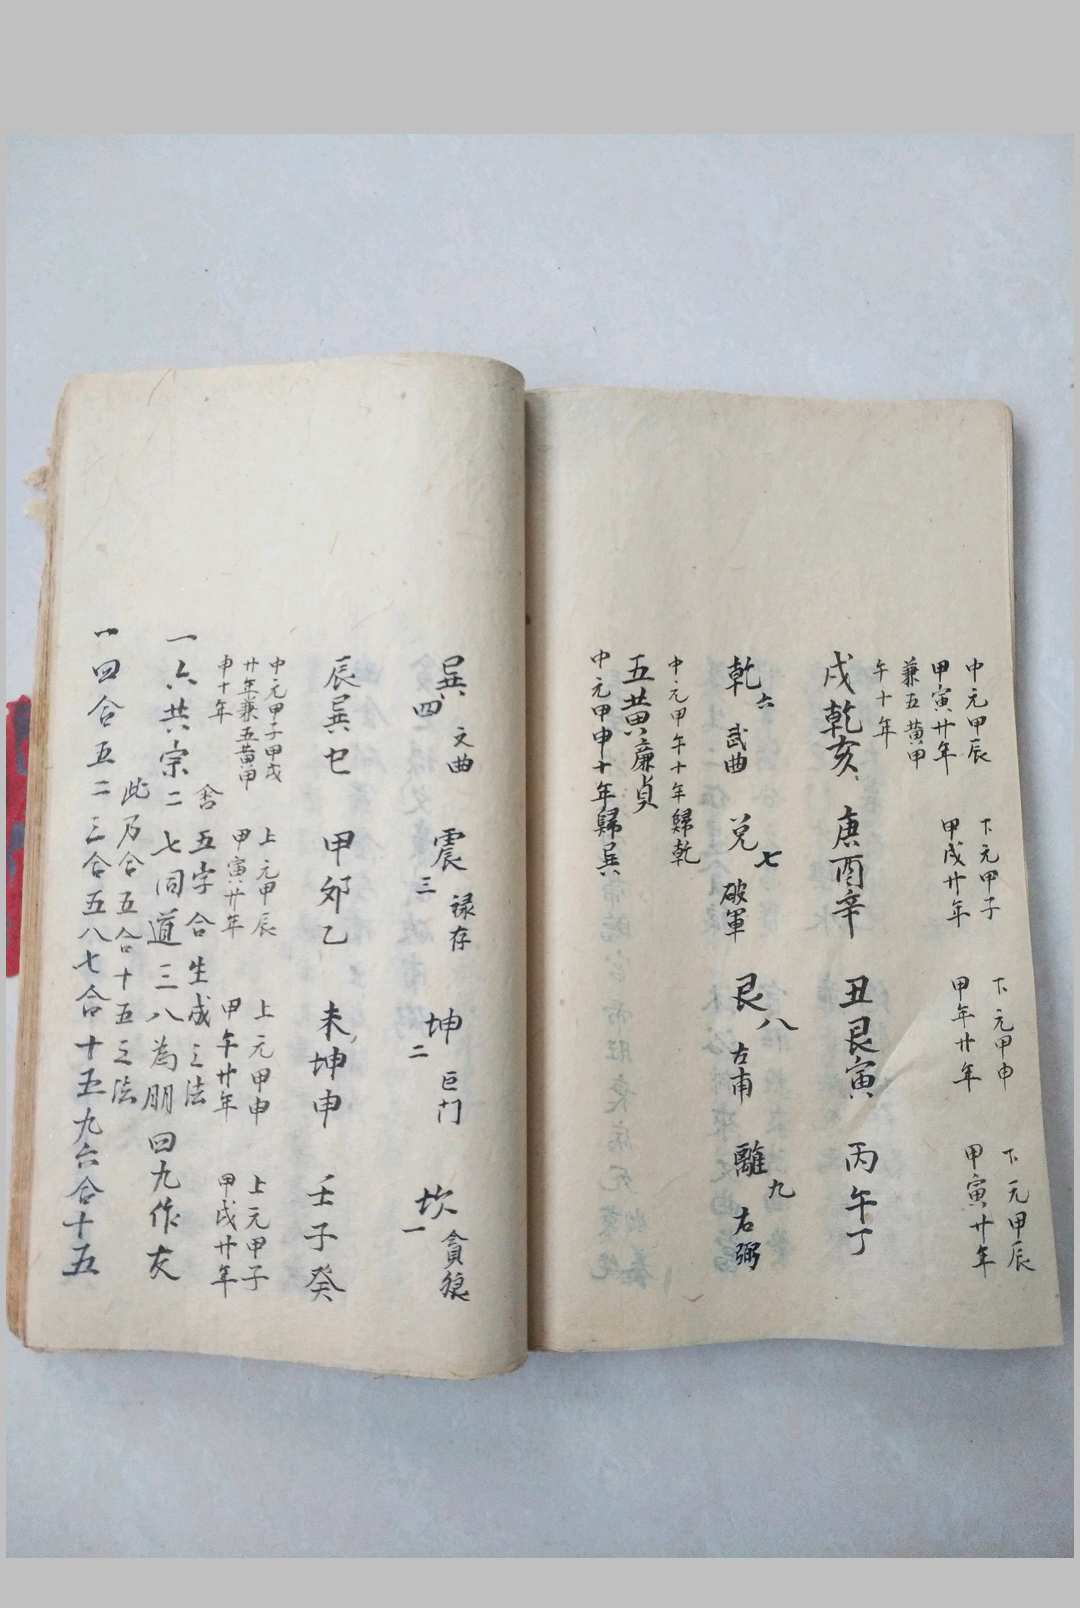 中元甲辰
甲寅廿年
兼五黄甲
午十年
下元甲子
甲戌廿年
下元甲申
甲午廿年
下元甲辰
甲寅廿年
戌乾亥 庚酉辛 丑艮寅 丙午丁
乾六 武曲 兌七 破軍 艮八 左甫 離九 右弼
中元甲午十年歸乾
五黄廉貞
中元甲申十年歸巽
巽四 文曲 震三 禄存 坤二 巨门 坎一 貪狼
辰巽巳 甲夘乙 未坤申 壬子癸
中元甲子甲戌
廿年兼五黄甲
申十年
上元甲辰
甲寅廿年
上元甲申
甲午廿年
上元甲子
甲戌廿年
五字合生成之法
一六共宗二七同道三八為朋四九作友
此乃合五合十五之法
一四合五二三合五八七合十五九六合十五